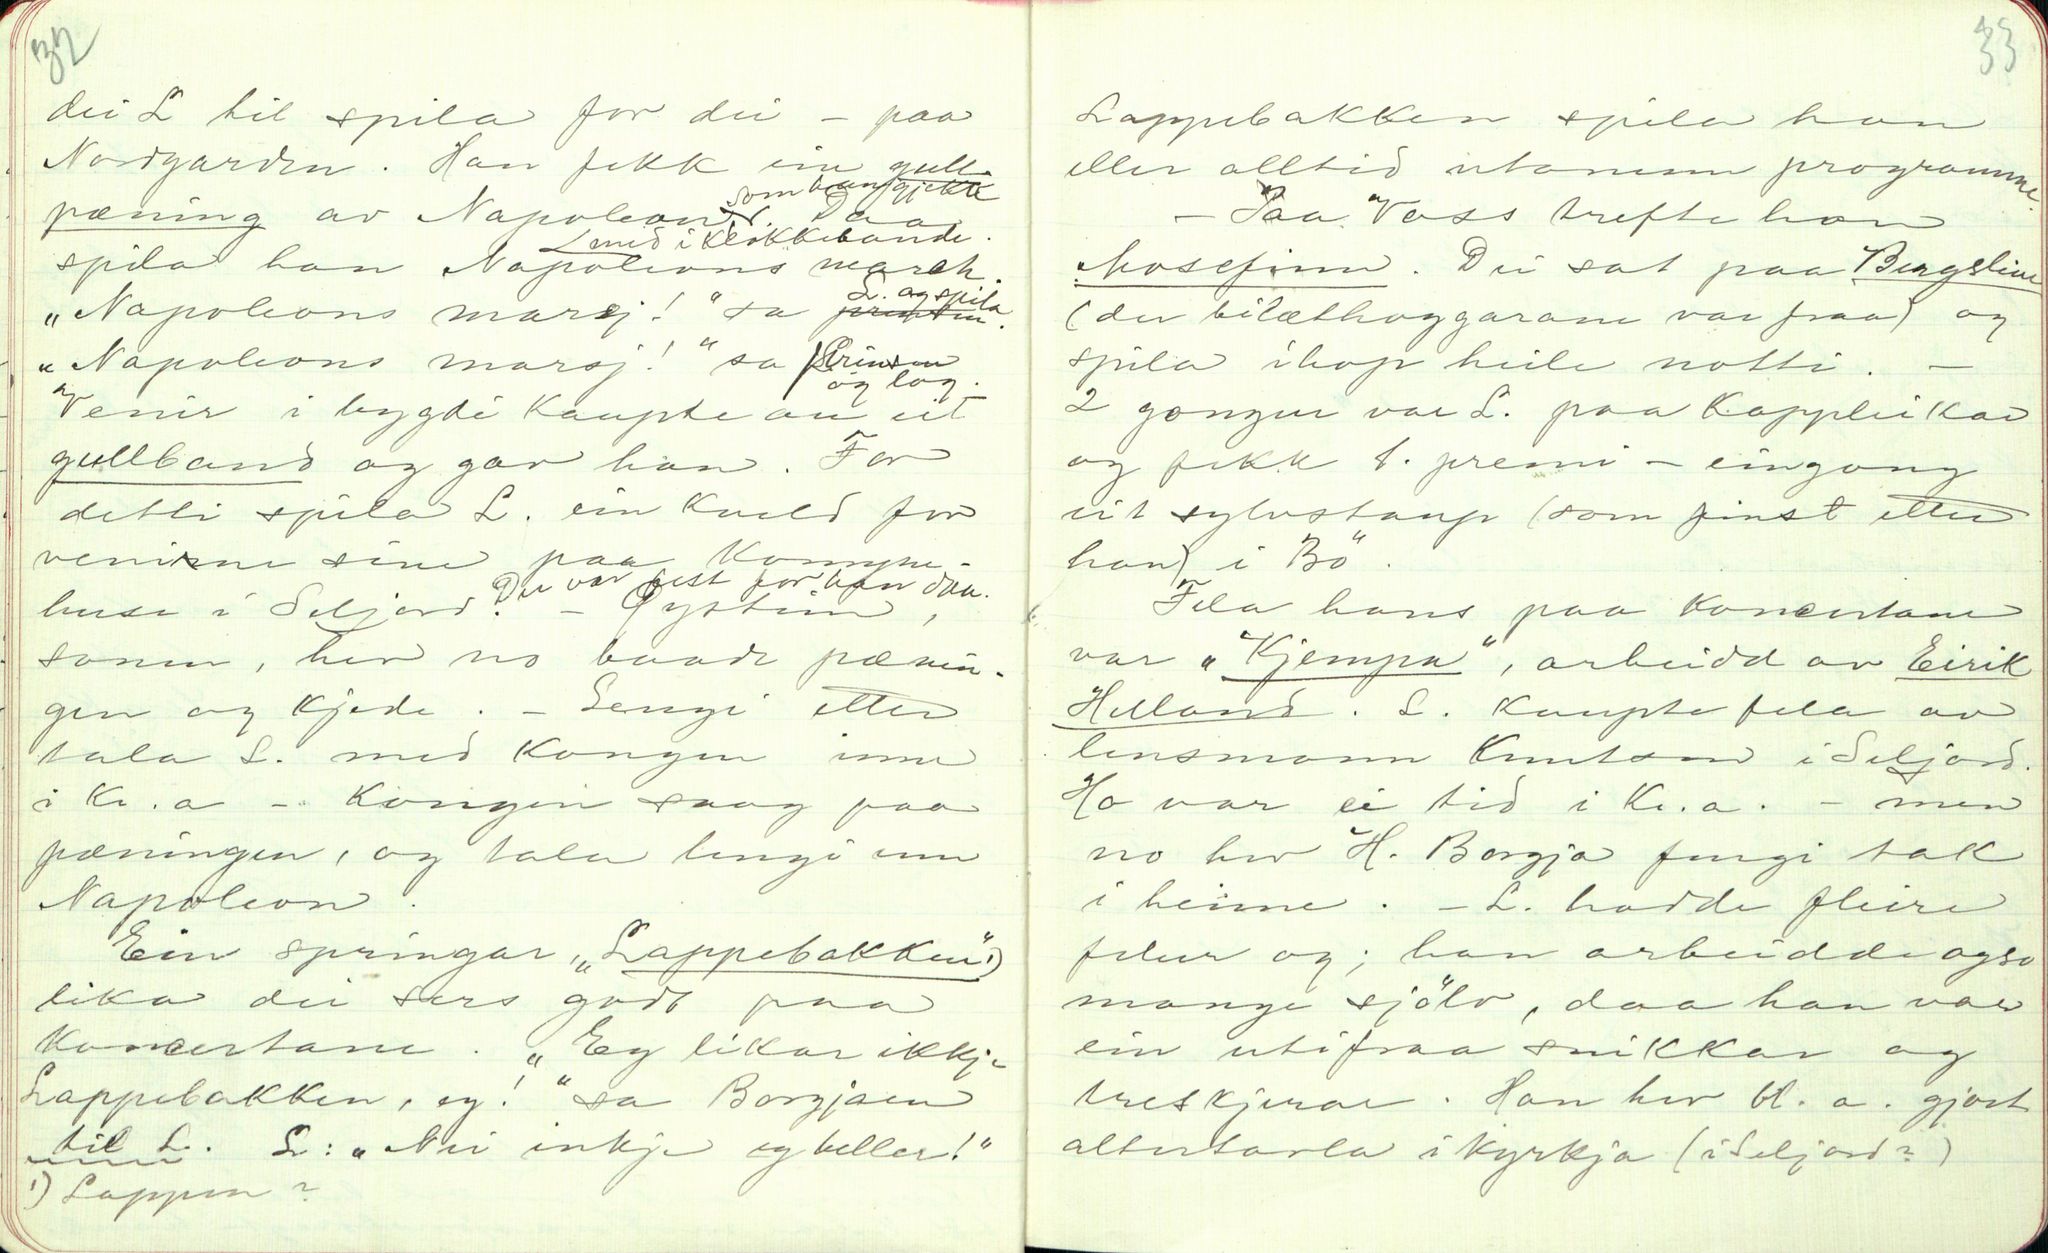 32
dei L til spila for dei – paa
Nordgarden. Han fekk ein gull-
pæning av Napoleon, som han gjekk
med i klokkebande. Daa
spila han Napoleons march.
„Napoleons marsj!" sa L. og spila.
„Napoleons marsj!" sa Prinsen
og log.
Venir i bygdi kaupte au eit
gullband og gav han. For
detti spila L. ein kveld for
venirne sine paa Kommune-
huse i Seljord. Dei var fest for han daa. – Øystein,
sonen, hev no baade pænin-
gen og kjede. – Lengi etter
tala L. med Kongen inne
i Kr.a – Kongen saag paa
pæningen, og tala lengi um
Napoleon.
Ein springar, „Lappebakken"¹)
lika dei sers godt paa
koncertane. „Eg likar ikkje
Lappebakken, eg!" sa Borgjaen
til L. L: „Nei inkje eg heller!"
¹) Lappen?
33
Lappebakken spila han
eller alltid utanum programme.
– Paa Voss trefte han
Mosefinn. Dei sat paa Bergslien
(der bilæthoggarane var fraa) og
spila ihop heile notti. –
2 gongur var L. paa Kappleikar
og fekk 1. premi – eingong
eit sylvstaup (som finst etter
han) i Bö.
Fela hans paa koncertane
var „Kjempa", arbeidd av Eirik
Helland. L. kaupte fela av
lensmann Knutson i Seljord.
Ho var ei tid i Kr.a. – men
no hev H. Borgja fengi tak
i henne. – L. hadde fleire
felur og; han arbeidde ogso
mange sjölv, daa han var
ein utifraa snikkar og
treskjerar. Han hev bl. a. gjort
altertavla i kyrkja (i Seljord?)